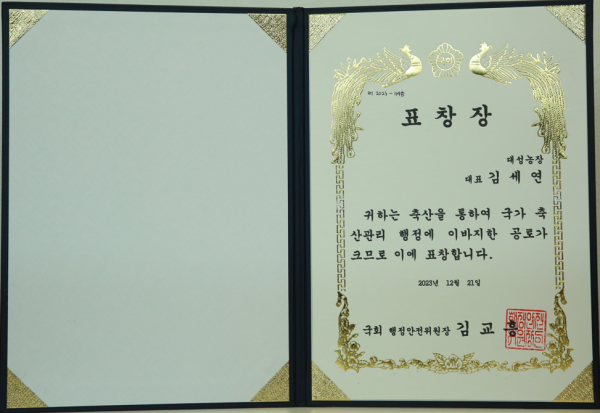 표 창 장
대섭농장
대표 김 세 연
귀하는 축산을 통하여 국가 축
산관리 행정에 이바지한 공로가
크므로 이에 표창합니다.
2023년 12월 21일
국회 행정안전위원장 김 교 흥